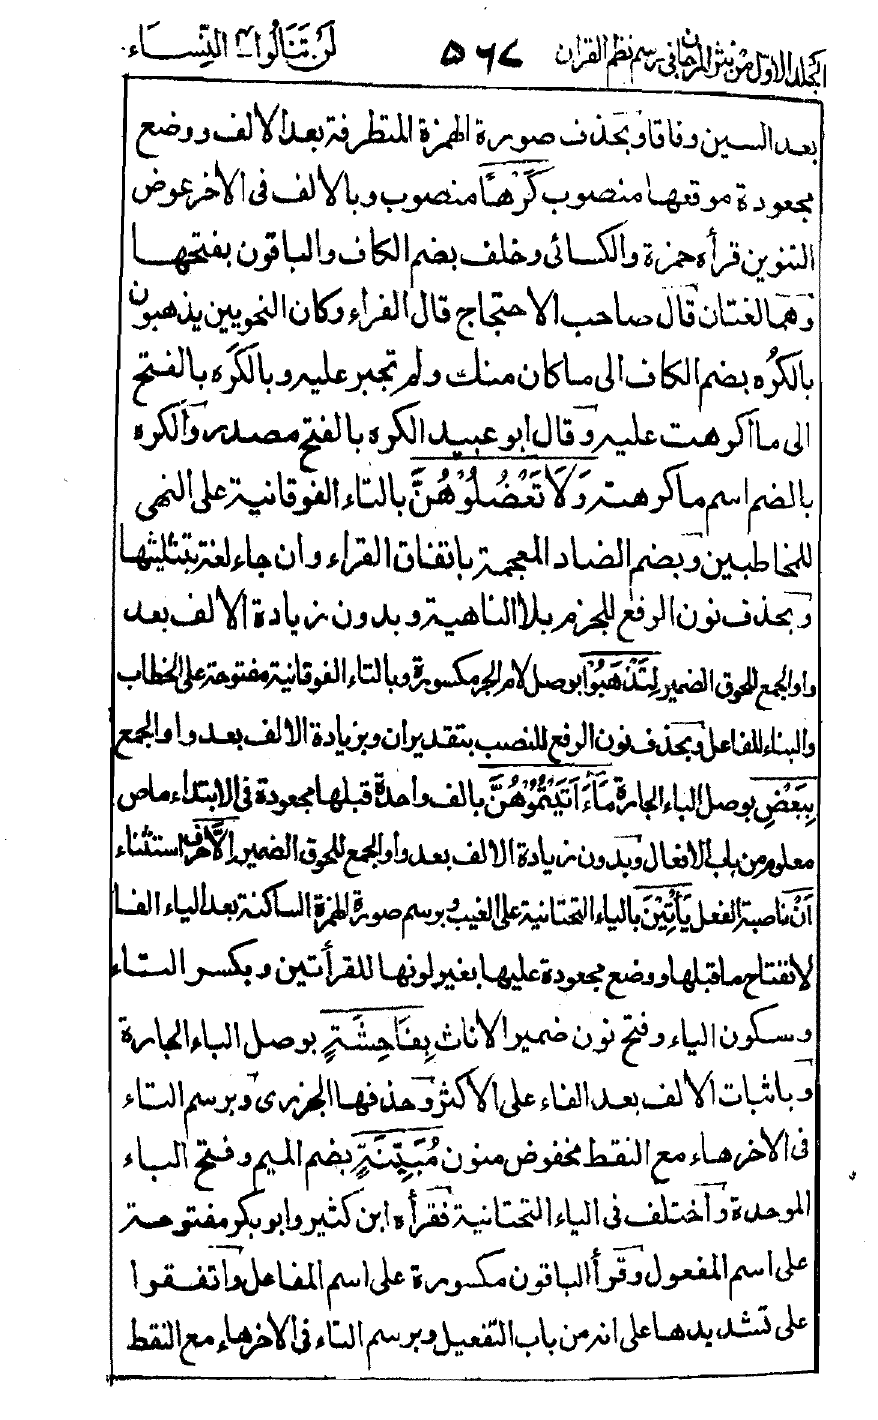 المجلد الاول من نثر المرجان في رسم نظم القران ٥٦٧ لن تنالوا ٤ النساء
بعد السين وفاقا وبحذف صورة الهمزة المتطرفة بعد الالف ووضع
مجعودة موقعها منصوب كَرْهًا منصوب وبالالف فى الاخر عوض
التنوين قرأه حمزة والكسائى وخلف بضم الكاف والباقون بفتحها
وهما لغتان قال صاحب الاحتجاج قال الفراء وكان النحويين يذهبون
بالكُره بضم الكاف الى ما كان منك ولم تجبر عليه وبالكَره بالفتح
الى ما اكرهت عليه وقال ابو عبيد الكره بالفتح مصدر والكره
بالضم اسم ما كرهته وَلَا تَعْضُلُوْهُنَّ بالتاء الفوقانية على النهى
للمخاطبين وبضم الضاد المعجمة باتفاق القراء وان جاء لغة بتثليثها
وبحذف نون الرفع للجزم بلا الناهية وبدون زيادة الالف بعد
واو الجمع للحوق الضمير لِتَذْهَبُوْا بوصل لام الجر مكسورة وبالتاء الفوقانية مفتوحة على الخطاب
والبناء للفاعل وبحذف نون الرفع للنصب بتقدير ان وبزيادة الالف بعد واو الجمع
بِبَعْضِ بوصل الباء الجارة مَآ ءَاتَيْتُمُوْهُنَّ بالف واحدة قبلها مجعودة فى الابتداء ماض
معلوم من باب الافعال وبدون زيادة الالف بعد واو الجمع للحوق الضمير اِلَّا حرف استثناء
اَنْ ناصبة الفعل يَأْتِيْنَ بالياء التحتانية على الغيب وبرسم صورة الهمزة الساكنة بعد الياء الفا
لانفتاح ما قبلها ووضع مجعودة عليها بغير لونها للقرأتين وبكسر التاء
وسكون الياء وفتح نون ضمير الاناث بِفَاحِشَةٍ بوصل الباء الجارة
وباثبات الالف بعد الفاء على الاكثر وحذفها الجزرى وبرسم التاء
فى الاخر هاء مع النقط مخفوض منون مُبَيِّنَةٍ بضم الميم وفتح الباء
الموحدة واختلف فى الياء التحتانية فقرأه ابن كثير وابو بكر مفتوحة
على اسم المفعول وقرأ الباقون مكسورة على اسم الفاعل واتفقوا
على تشديدها على انه من باب التفعيل وبرسم التاء فى الاخر هاء مع النقط